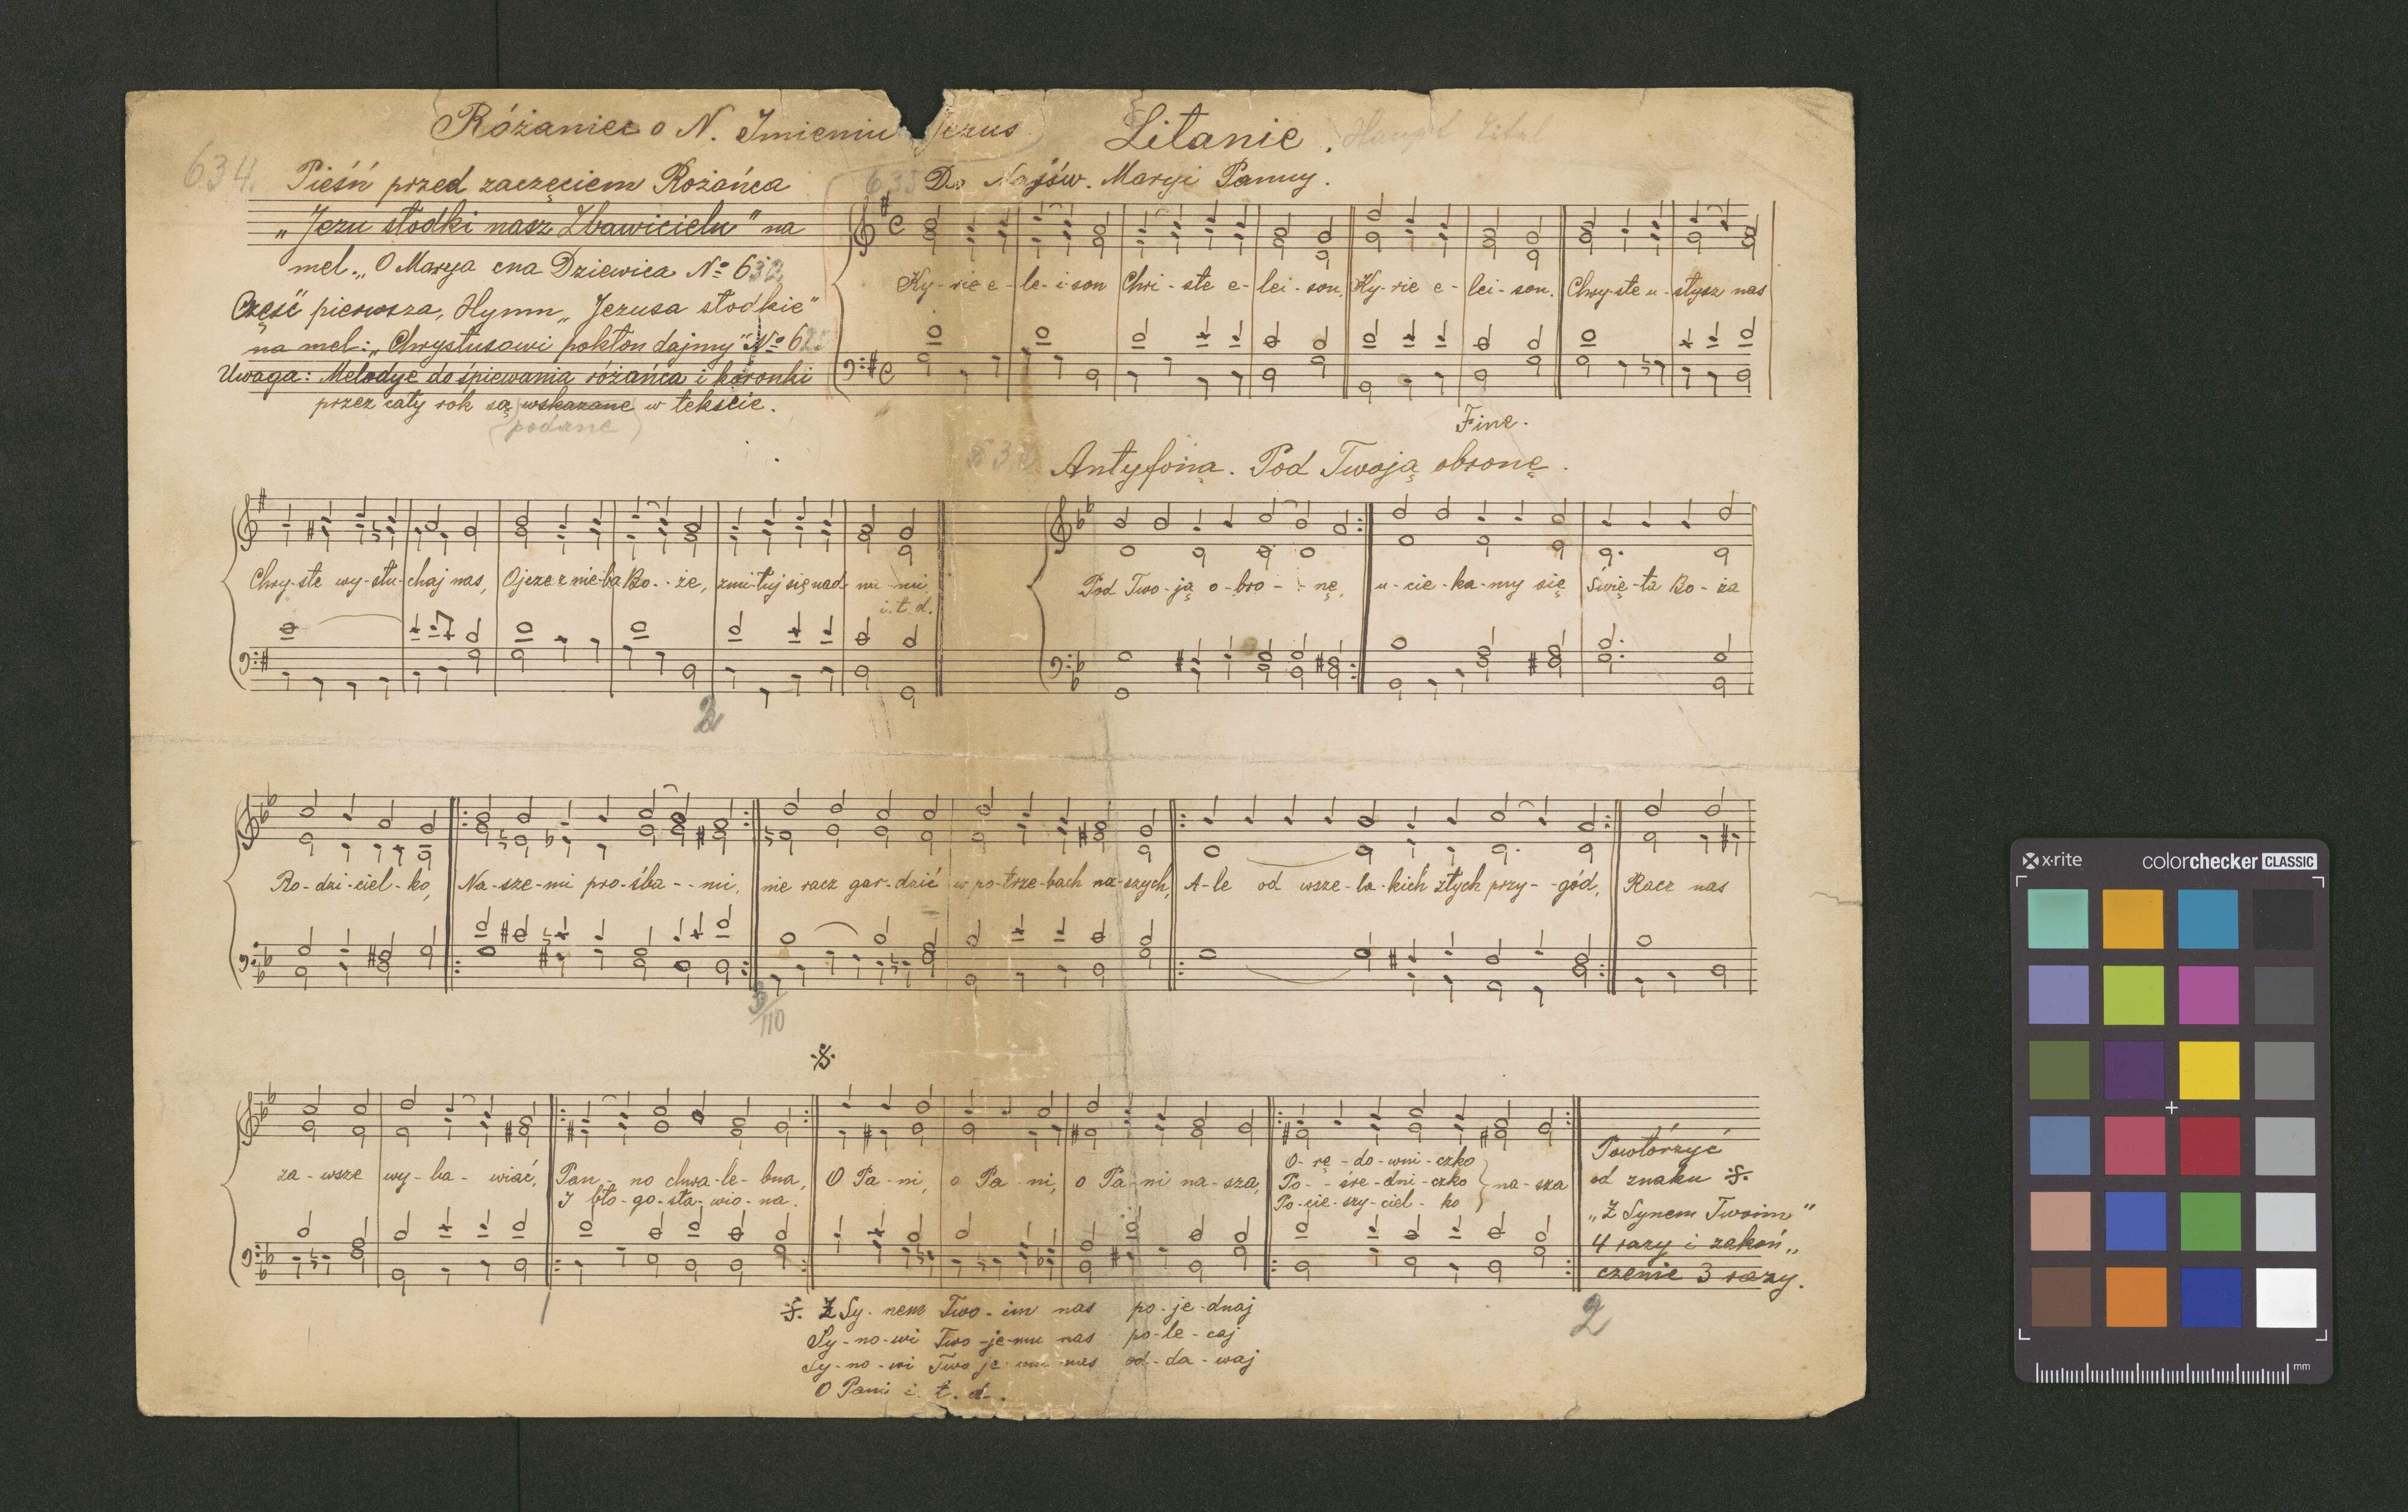 Różaniec o N. Imieniu Jezus
634. Pieśń przed zaczęciem Rożańca
„Jezu słodki nasz Zbawicielu” na
mel. „O Marya cna Dziewica № 632
Część pierwsza, Hymn „Jezusa słodkie”
na mel: „Chrystusowi pokłon dajmy” № 6
Uwaga: Melodye do śpiewania różańca i koronki
przez cały rok są wskazane w tekście.
(podane)
Litanie. Haupt Titel
635 Do Najśw. Maryi Panny.
Ky-rie e-le-i-son Chri-ste e-lei-son, Ky-rie e-lei-son. Chry-ste u-słysz nas
Fine.
Chry-ste wy-słu-chaj nas, Ojcze z nie-ba Bo--że, zmi-łuj się nad na-mi
i.t.d.
2
Antyfona. Pod Twoją obronę.
Pod Two-ją o-bro--nę, u-cie-ka-my się Świę-ta Bo-ża
Ro-dzi-ciel-ko, Na-sze-mi pro-śba--mi, nie racz gar-dzić w po-trze-bach na-szych, A-le od wsze-la-kich złych przy--gód, Racz nas
3/110
za-wsze wy-ba-wiać, Pan-no chwa-le-bna, O Pa-ni, o Pa-ni, o Pa-ni na-sza, O-rę-do-wni-czko
I bło-go-sła-wio-na. Po--śre-dni-czko na-sza
Po-cie-szy-ciel-ko
Powtórzyć
od znaku
„Z Synem Twoim”
4 razy i zakoń„
czenie 3 razy.
2
Z Sy-nem Two-im nas po-je-dnaj
Sy-no-wi Two-je-mu nas po-le-caj
Sy-no-wi Two je-mu nas od-da-waj
O Pani i.t.d.
x-rite colorchecker CLASSIC
mm